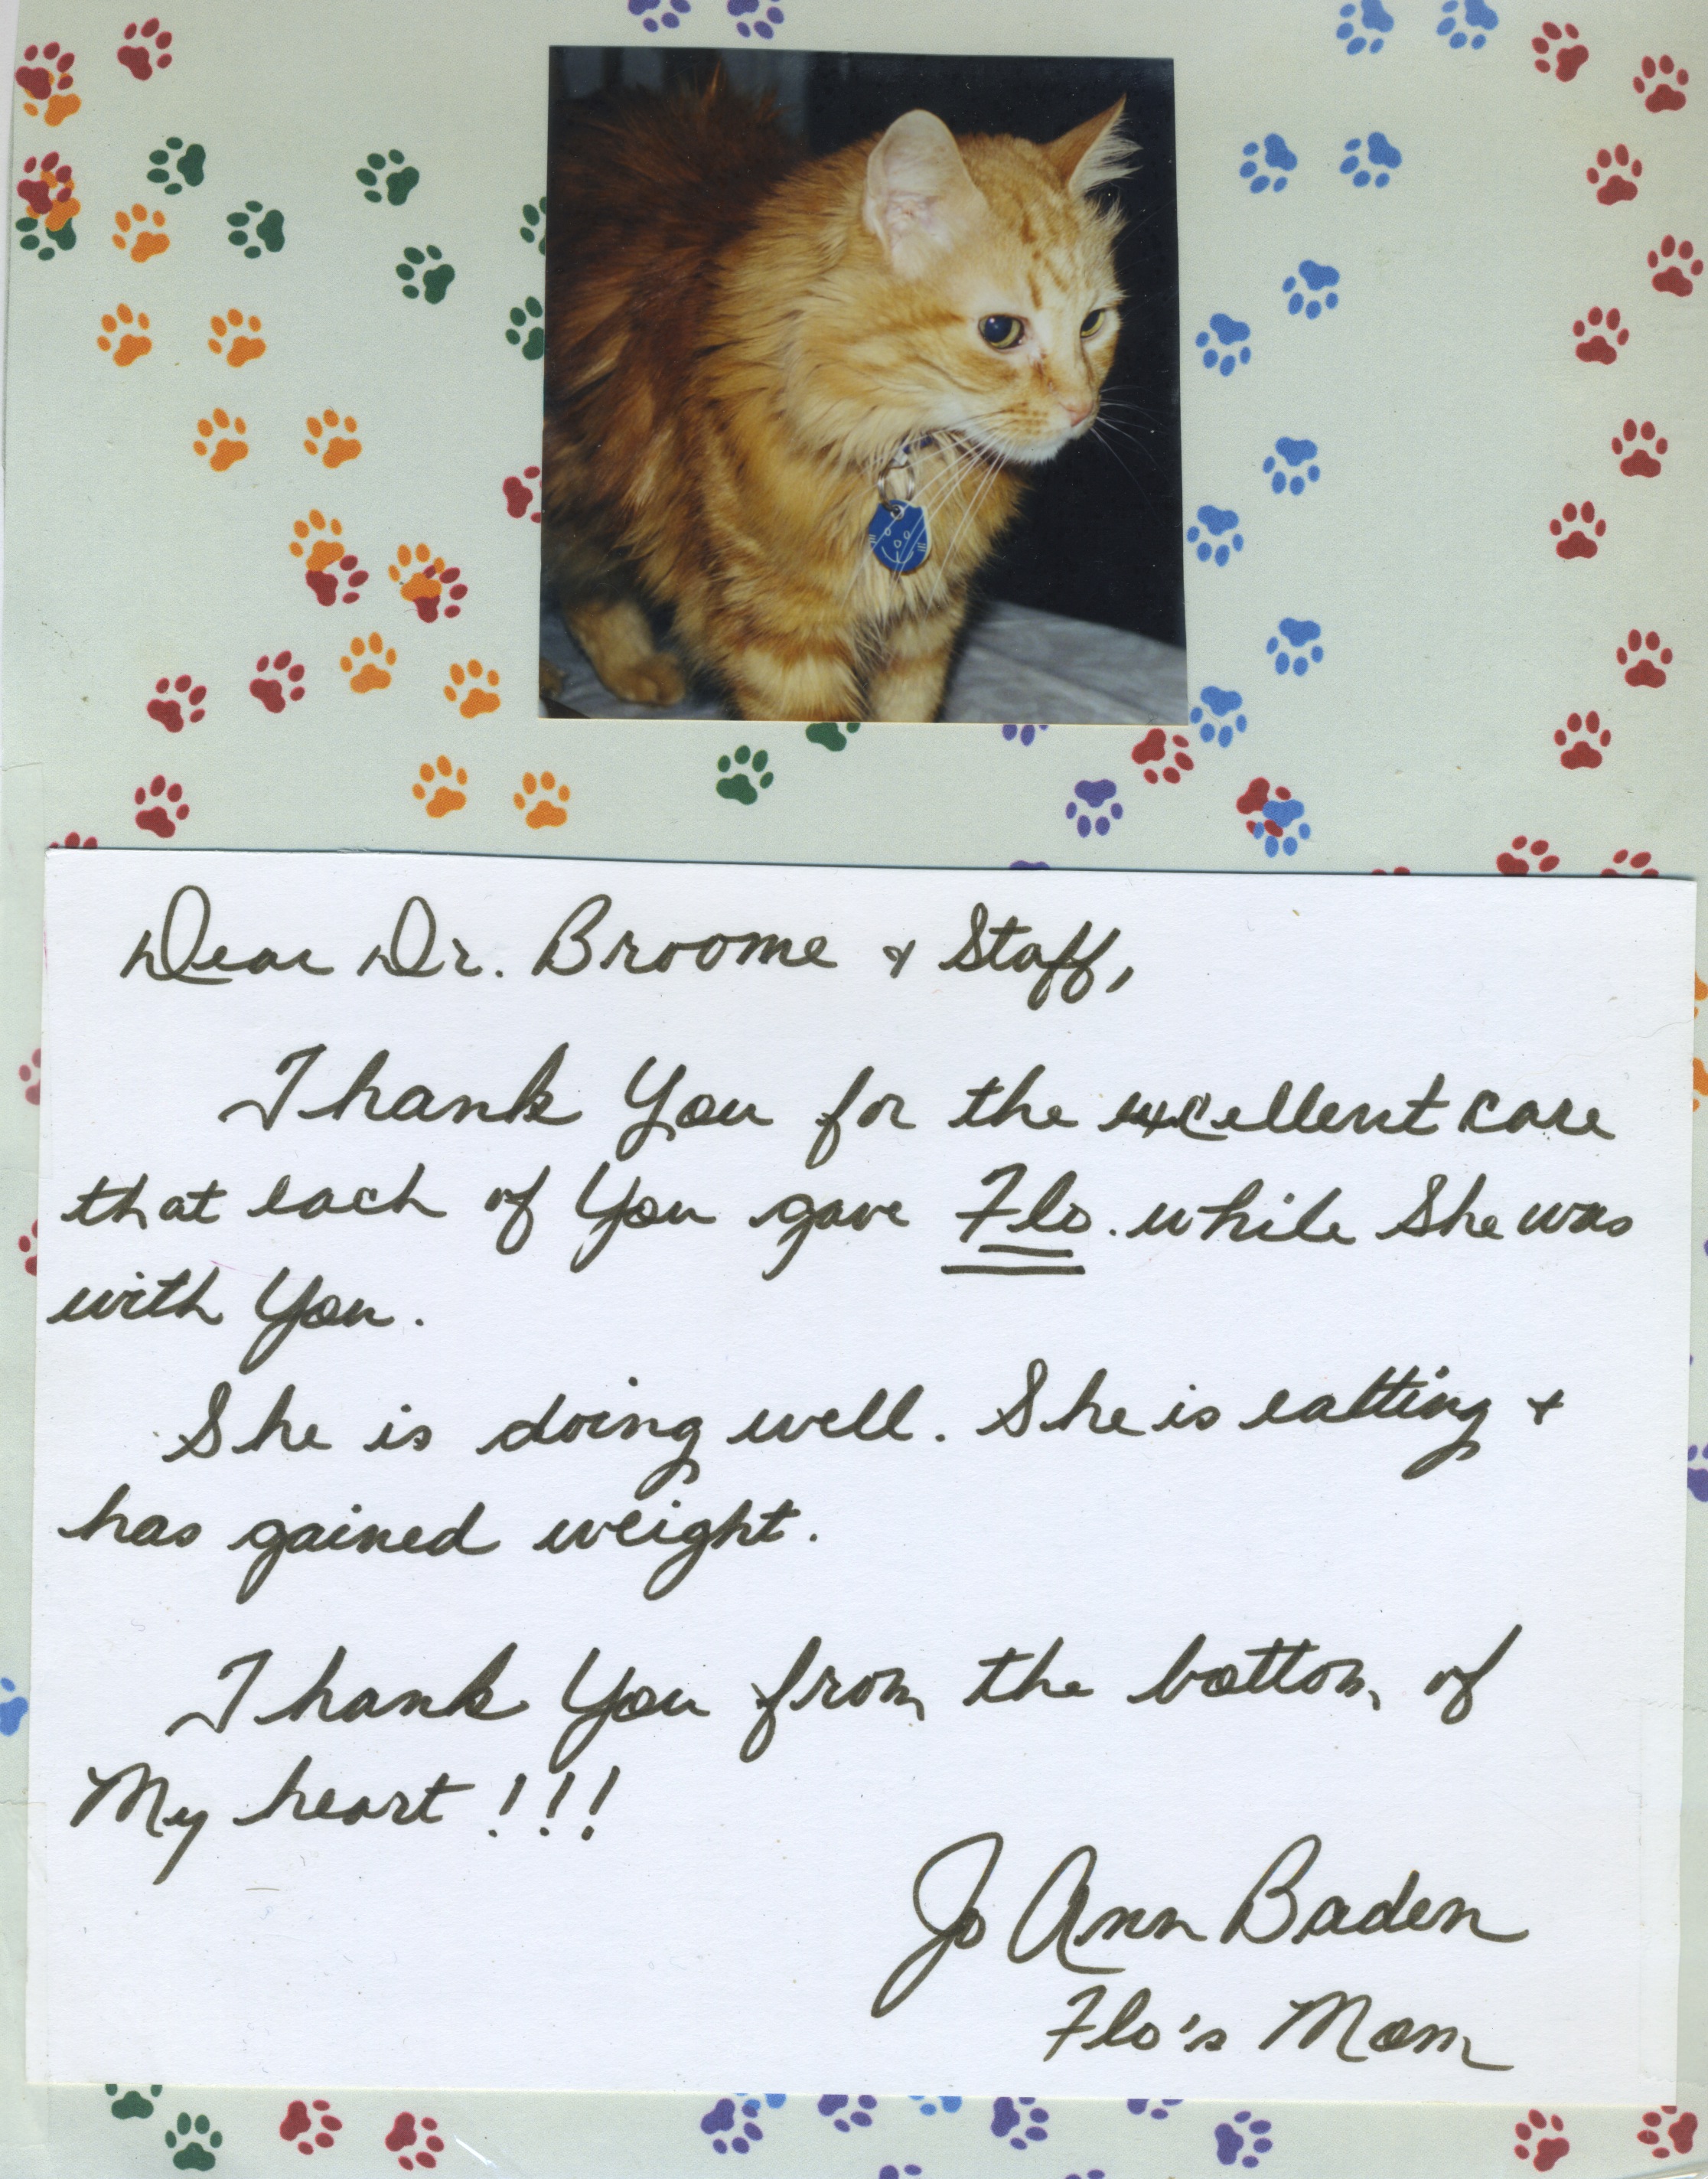 Dear Dr. Broome & Staff,
Thank You for the excellent care
that each of You gave Flo. while She was
with You.
She is doing well. She is eatting &
has gained weight.
Thank You from the bottom of
My heart!!!
Jo Ann Baden
Flo's Mom